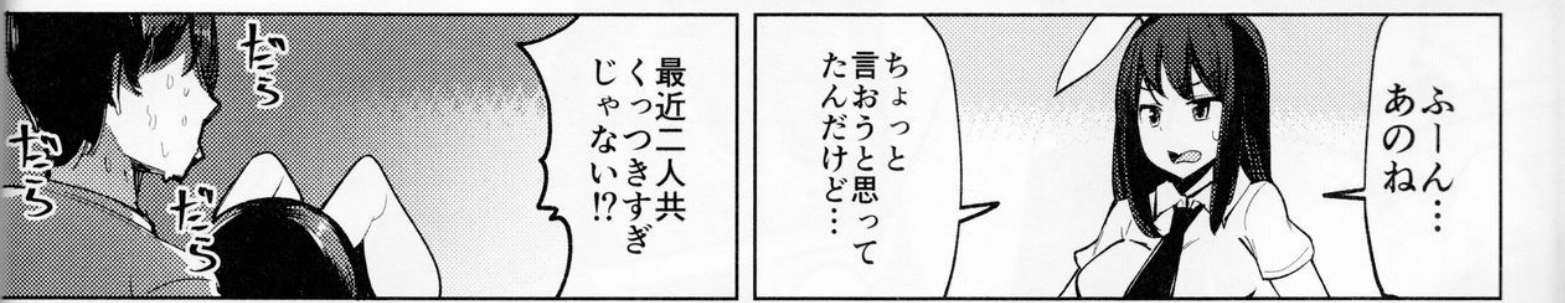 ふーん…
あのね
ちょっと
言おうと思って
たんだけど…
最近二人共
くっつきすぎ
じゃない!?
だら
だら
だら